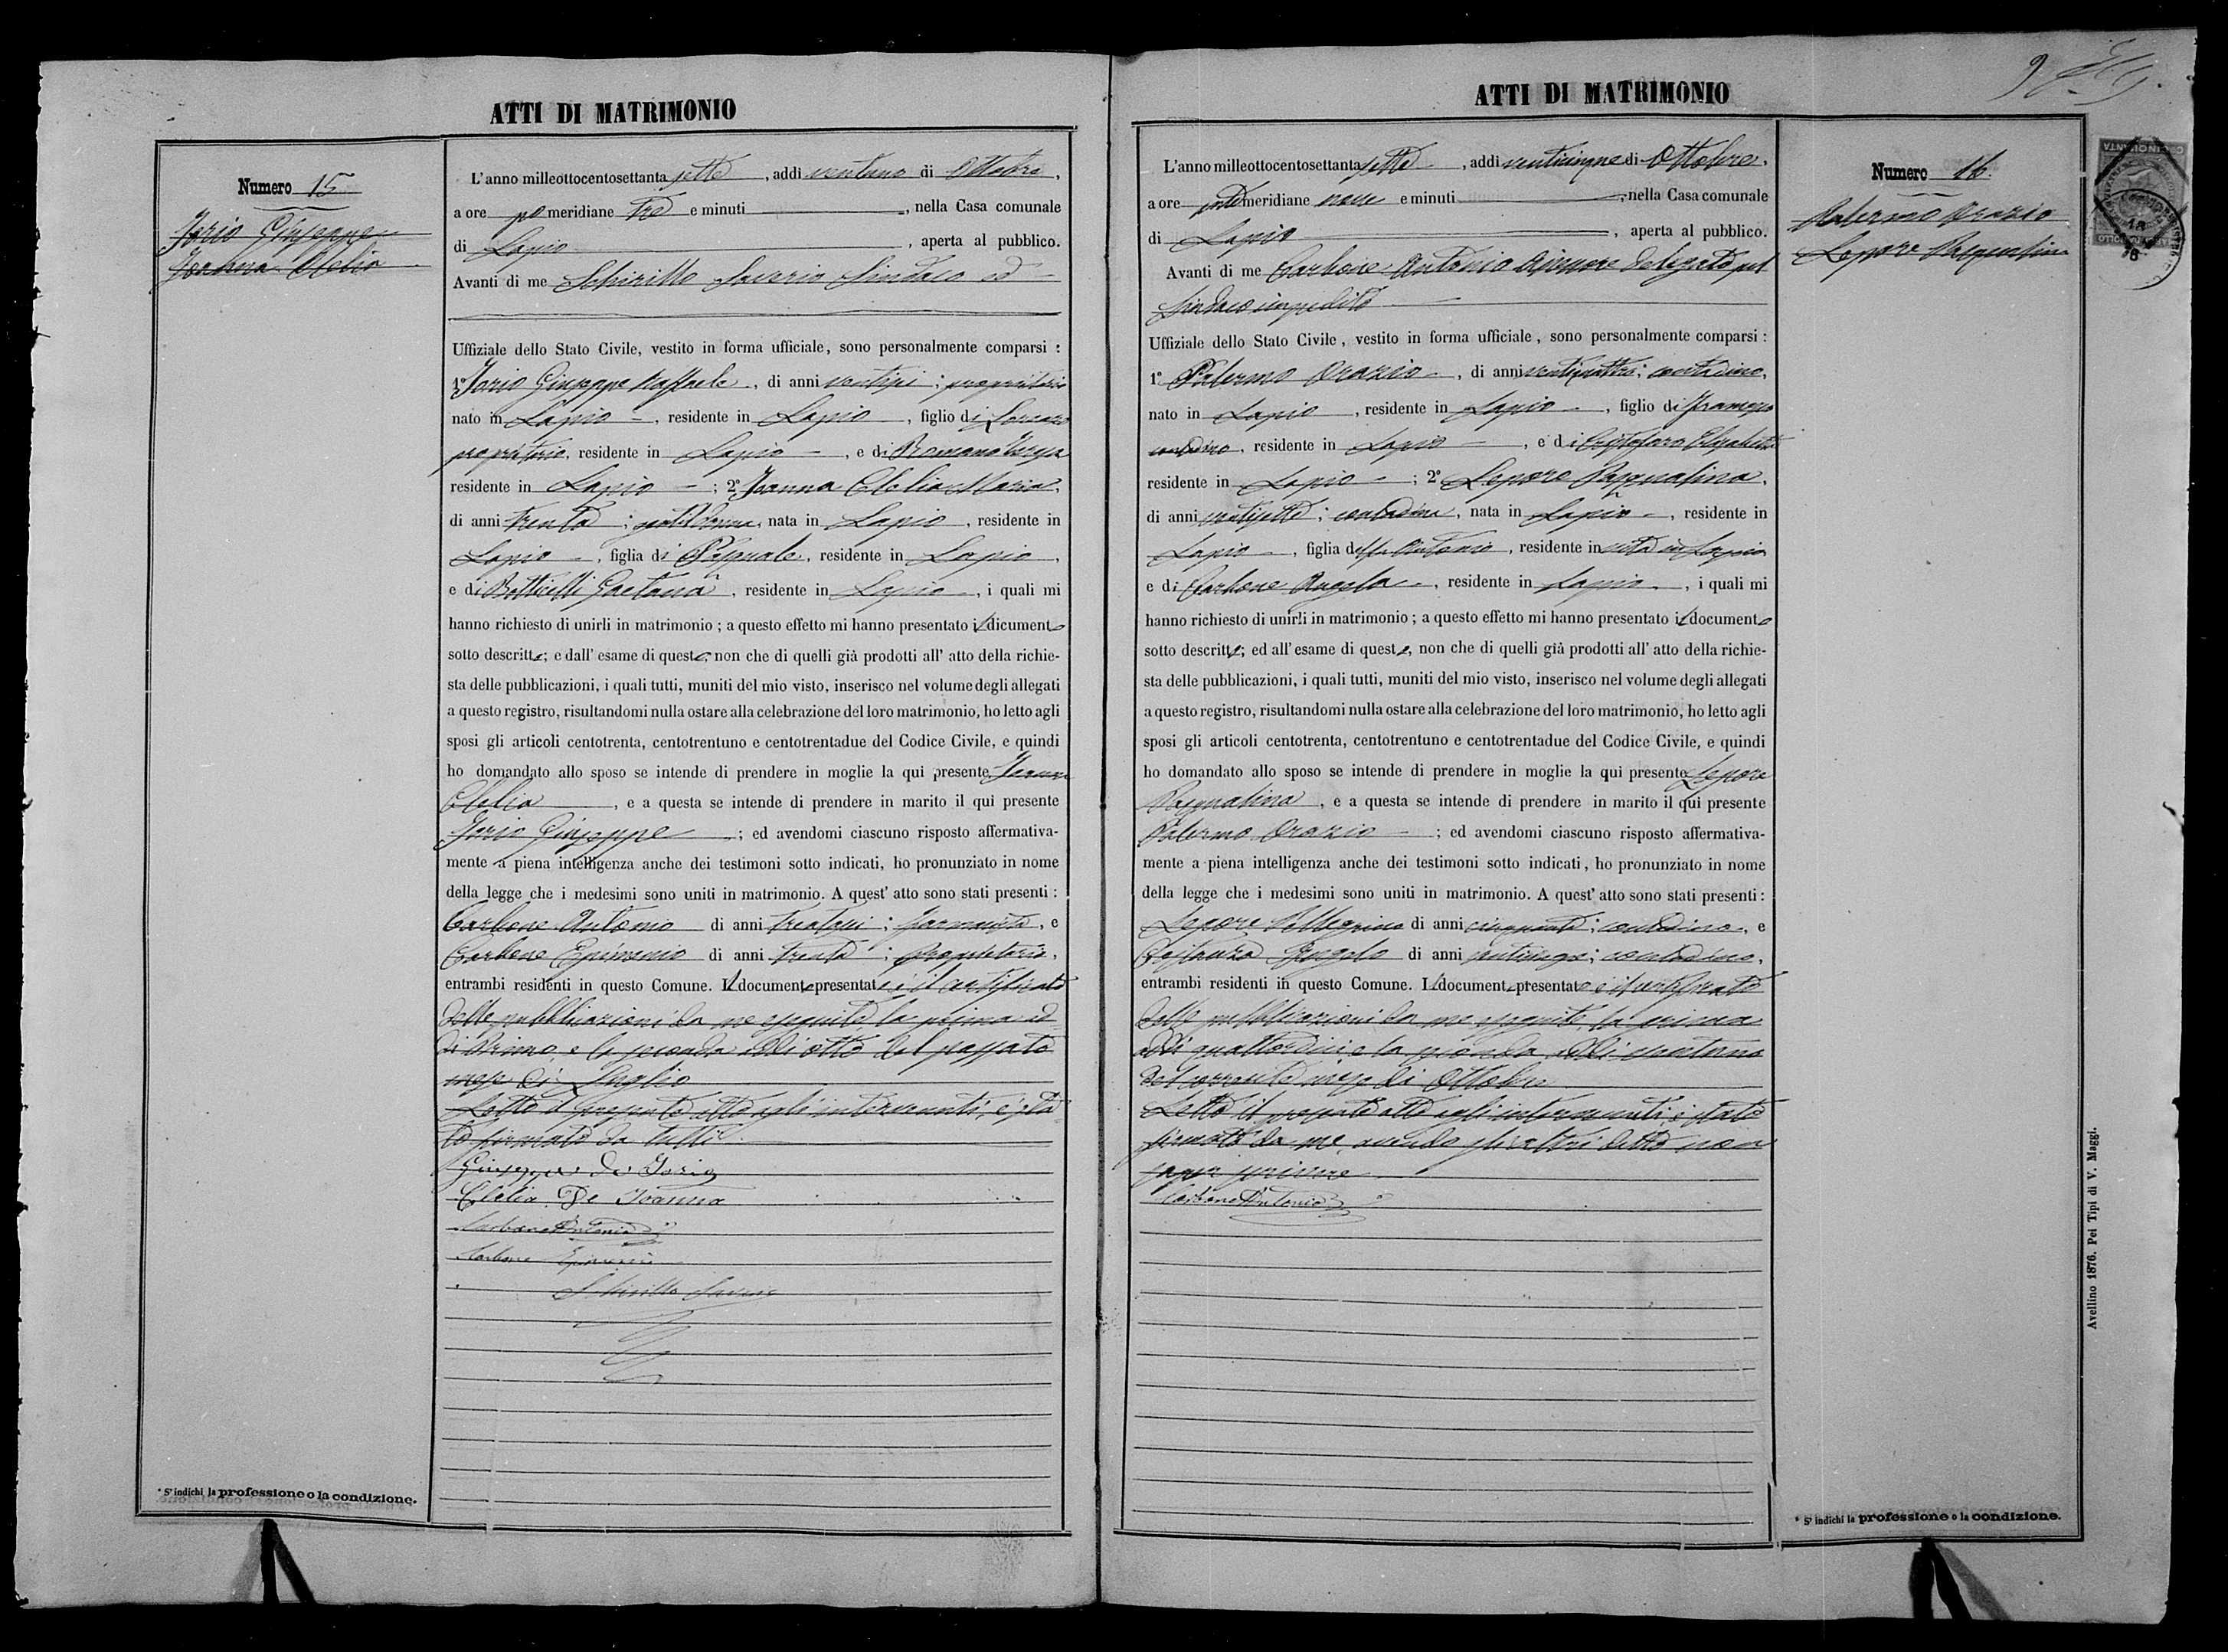 ATTI DI MATRIMONIO
Numero 15
Iorio Giuseppe
Ioanna Clelia
L'anno milleottocentosettantasette, addì ventuno di Ottobre,
a ore pomeridiane tre e minuti, nella Casa comunale
di Lapio, aperta al pubblico.
Avanti di me Schirillo Saverio Sindaco ed
Uffiziale dello Stato Civile, vestito in forma ufficiale, sono personalmente comparsi :
1º Iorio Giuseppe Raffaele, di anni ventisei ; proprietario
nato in Lapio, residente in Lapio, figlio di Lorenzo
proprietario, residente in Lapio, e di Romano
residente in Lapio ; 2º Ioanna Clelia Maria,
di anni trenta ; gentildonna, nata in Lapio, residente in
Lapio, figlia di Pasquale, residente in Lapio,
e di Botticelli Gaetana, residente in Lapio, i quali mi
hanno richiesto di unirli in matrimonio ; a questo effetto mi hanno presentato il dicumento
sotto descritto; e dall' esame di questo, non che di quelli già prodotti all' atto della richie-
sta delle pubblicazioni, i quali tutti, muniti del mio visto, inserisco nel volume degli allegati
a questo registro, risultandomi nulla ostare alla celebrazione del loro matrimonio, ho letto agli
sposi gli articoli centotrenta, centotrentuno e centotrentadue del Codice Civile, e quindi
ho domandato allo sposo se intende di prendere in moglie la qui presente Ioanna
Clelia, e a questa se intende di prendere in marito il qui presente
Iorio Giuseppe ; ed avendomi ciascuno risposto affermativa-
mente a piena intelligenza anche dei testimoni sotto indicati, ho pronunziato in nome
della legge che i medesimi sono uniti in matrimonio. A quest' atto sono stati presenti :
Carbone Antonio di anni trentasei ; farmacista, e
Carbone Epimenio di anni trenta ; proprietario,
entrambi residenti in questo Comune. Il documento presentato è il certificato
delle pubblicazioni da me eseguite, la prima ad
di Primo, e la seconda addì otto del passato
mese di Luglio
Letto il presente atto agli intervenuti, è sta
to firmato da tutti
Giuseppe de Iorio
Clelia De Ioanna
Carbone Antonio
Carbone Epimenio
Schirillo Saverio
* S' indichi la professione o la condizione.
ATTI DI MATRIMONIO
9
L'anno milleottocentosettantasette, addì venticinque di Ottobre,
a ore antimeridiane nove e minuti, nella Casa comunale
di Lapio, aperta al pubblico.
Avanti di me Carbone Antonio Assessore Delegato pel
Sindaco impedito
Uffiziale dello Stato Civile, vestito in forma ufficiale, sono personalmente comparsi :
1º Palermo Orazio, di anni ventiquattro ; contadino,
nato in Lapio, residente in Lapio, figlio di Francesco
contadino, residente in Lapio, e di Cristofaro Elisabetta
residente in Lapio ; 2º Lepore Pasqualina,
di anni ventisette ; contadina, nata in Lapio, residente in
Lapio, figlia del fu Antonio, residente in vita in Lapio
e di Carbone Angela, residente in Lapio, i quali mi
hanno richiesto di unirli in matrimonio ; a questo effetto mi hanno presentato il documento
sotto descritto; ed all' esame di questo, non che di quelli già prodotti all' atto della richie-
sta delle pubblicazioni, i quali tutti, muniti del mio visto, inserisco nel volume degli allegati
a questo registro, risultandomi nulla ostare alla celebrazione del loro matrimonio, ho letto agli
sposi gli articoli centotrenta, centotrentuno e centotrentadue del Codice Civile, e quindi
ho domandato allo sposo se intende di prendere in moglie la qui presente Lepore
Pasqualina, e a questa se intende di prendere in marito il qui presente
Palermo Orazio ; ed avendomi ciascuno risposto affermativa-
mente a piena intelligenza anche dei testimoni sotto indicati, ho pronunziato in nome
della legge che i medesimi sono uniti in matrimonio. A quest' atto sono stati presenti :
Lepore Pellegrino di anni cinquanta ; contadino, e
Costanza Angelo di anni venticinque ; contadino,
entrambi residenti in questo Comune. Il documento presentato è il certificato
delle pubblicazioni da me eseguite la prima
addì quattordici e la seconda addì ventuno
del corrente mese di Ottobre
Letto il presente atto agli intervenuti, è stato
firmato da me, avendo gli altri detto non
saper scrivere
Carbone Antonio
Numero 16.
Palermo Orazio
Lepore Pasqualina
Avellino 1876. Pei Tipi di V. Maggi.
* S' indichi la professione o la condizione.